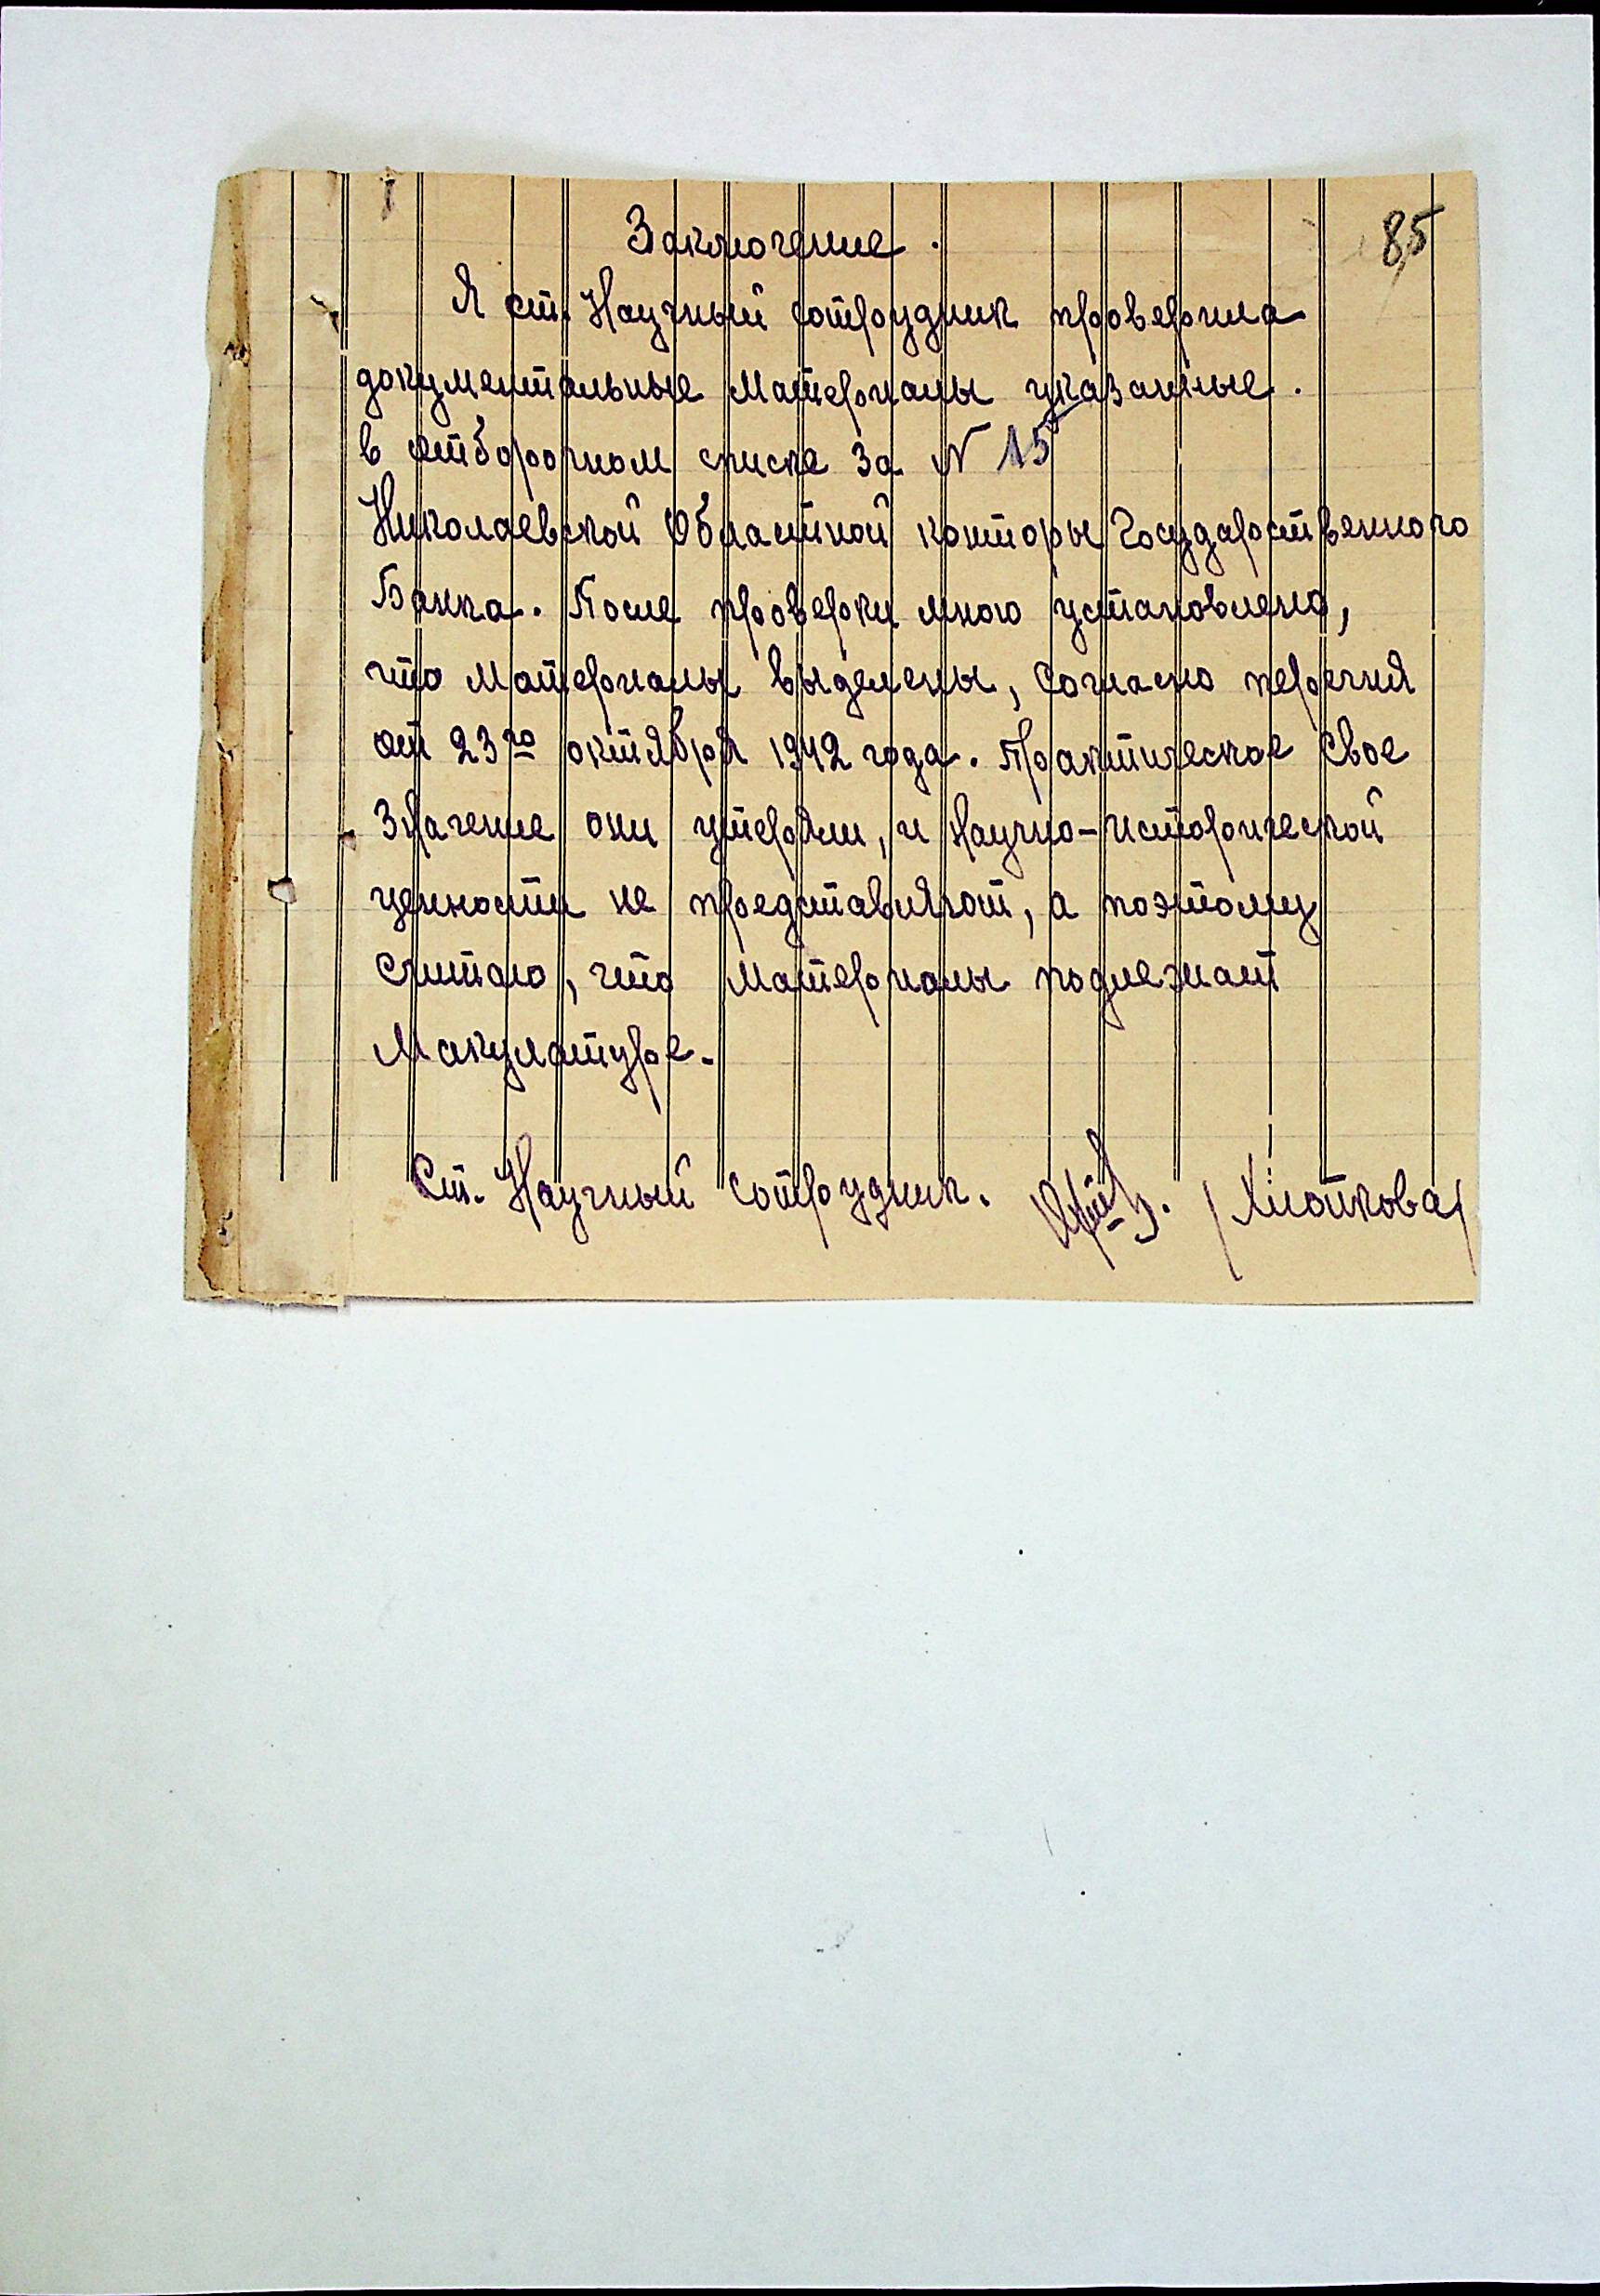 85
Заключение.
Я ст. Научный сотрудник проверила
документальные материалы указанные.
в отборочном списке за N 15
Николаевской Областной конторы Государственного
Банка. После проверки мною установлено,
что материалы выделены, согласно перечня
от 23го октября 1942 года. Практическое свое
значение они утеряли, и научно-исторической
ценности не представляют, а поэтому
считаю, что материалы подлежат
Макулатуре.
Ст. Научный сотрудник. /Хлопкова/